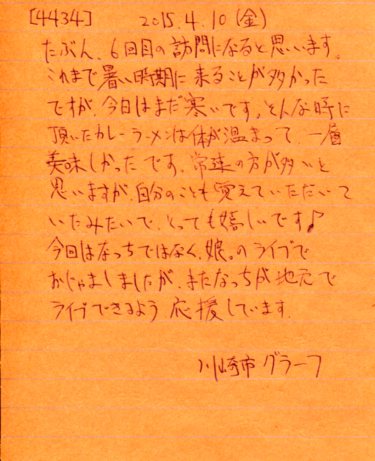 [4434] 2015.4.10(金)
たぶん、6回目の訪問になると思います。
これまで暑い時期に来ることが多かった
ですが、今日はまだ寒いです。そんな時に
頂いたカレーラーメンは体が温まって、一層
美味しかったです。常連の方が多いと
思いますが、自分のことも覚えていただいて
いたみたいで、とっても嬉しいです♪
今回はなっちではなく、娘。のライブで
おじゃましましたが、またなっちが地元で
ライブできるよう応援しています。
川崎市 グラーフ